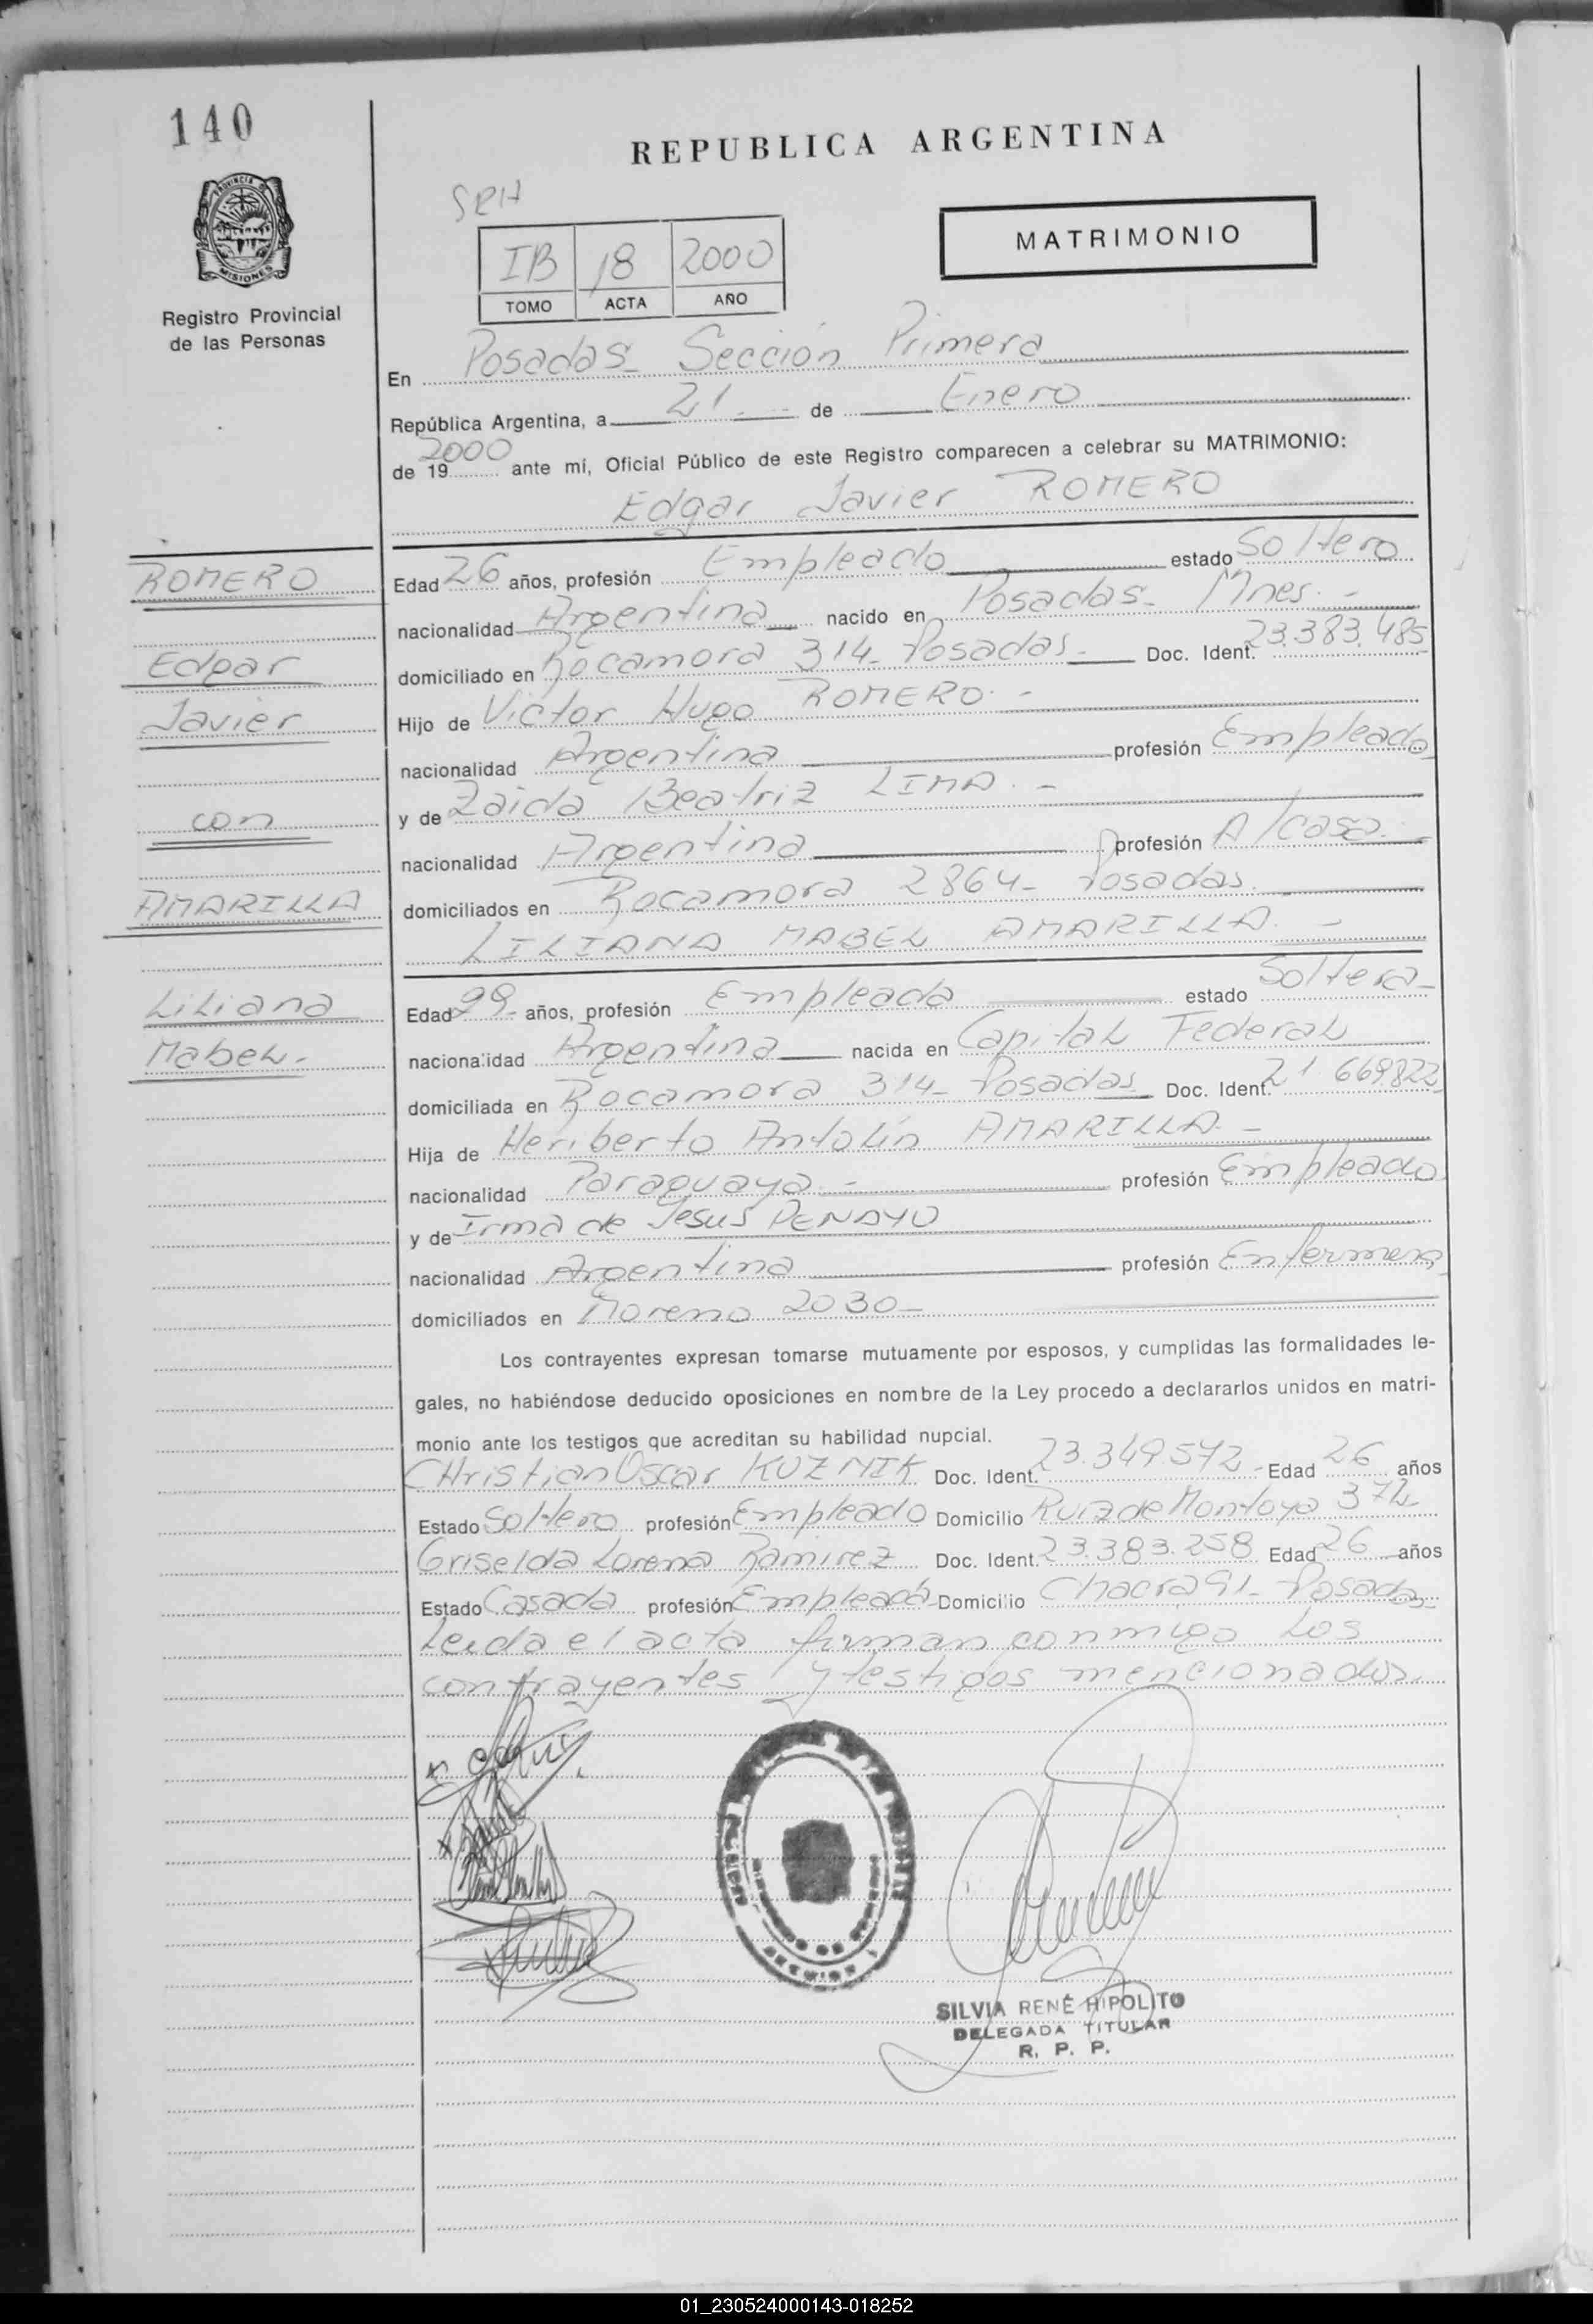 140
REPUBLICA ARGENTINA
PROVINCIA DE
MISIONES
Registro Provincial
de las Personas
SRH
IB 18 2000
TOMO ACTA AÑO
MATRIMONIO
En Posadas - Sección Primera
República Argentina, a 21 de Enero
de 19 2000 ante mí, Oficial Público de este Registro comparecen a celebrar su MATRIMONIO:
Edgar Javier ROMERO
ROMERO
Edgar
Javier
con
AMARILLA
Liliana
Mabel.-
Edad 26 años, profesión Empleado estado Soltero
nacionalidad Argentina nacido en Posadas - Mnes. -
domiciliado en Rocamora 314 - Posadas - Doc. Ident. 23.383.485
Hijo de Victor Hugo ROMERO. -
nacionalidad Argentina profesión Empleado
y de Zaida Beatriz LIMA. -
nacionalidad Argentina profesión A/casa.
domiciliados en Rocamora 2864 - Posadas.
LILIANA MABEL AMARILLA. -
Edad 29 - años, profesión Empleada estado Soltera -
nacionalidad Argentina nacida en Capital Federal
domiciliada en Rocamora 314 - Posadas Doc. Ident. 21.669822
Hija de Heriberto Antolín AMARILLA. -
nacionalidad Paraguaya. - profesión Empleado
y de Irma de Jesus PENAYO
nacionalidad Argentina profesión Enfermera
domiciliados en Moreno 2030 -
Los contrayentes expresan tomarse mutuamente por esposos, y cumplidas las formalidades le-
gales, no habiéndose deducido oposiciones en nombre de la Ley procedo a declararlos unidos en matri-
monio ante los testigos que acreditan su habilidad nupcial.
CHristian Oscar KUZMIK Doc. Ident. 23.349.572 - Edad 26 años
Estado Soltero profesión Empleado Domicilio Ruiz de Montoya 374
Griselda Lorena Ramirez Doc. Ident. 23.383.258 Edad 26 años
Estado Casada profesión Empleada - Domicilio Chacra 91 - Posadas -
Leida el acta firman conmigo los
contrayentes y testigos mencionados.
SILVIA RENÉ HIPOLITO
DELEGADA TITULAR
R. P. P.
01_230524000143-018252